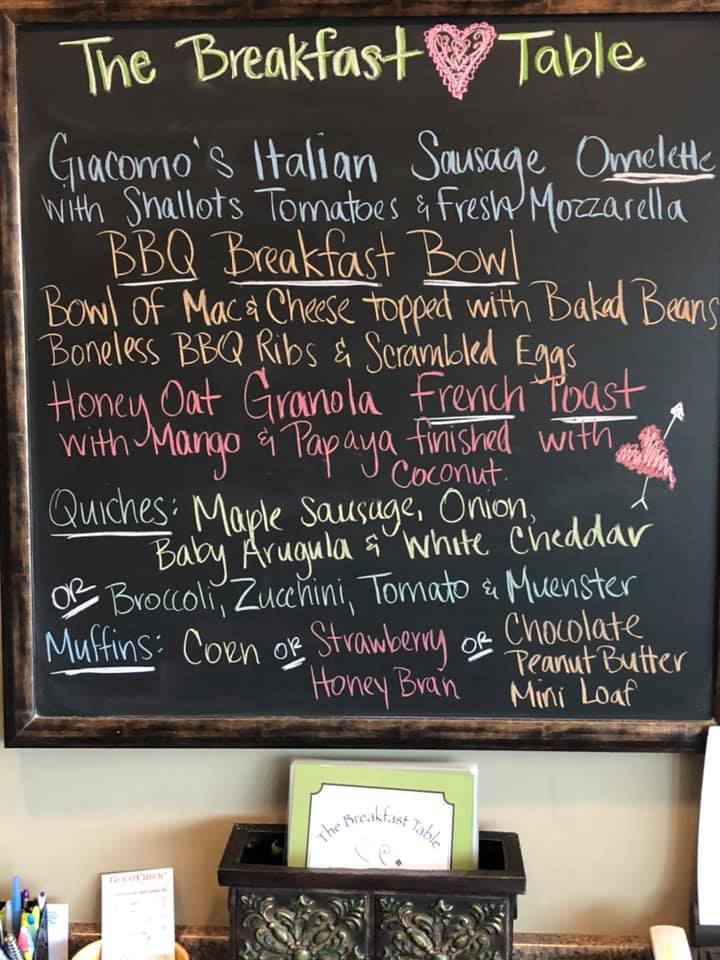 The Breakfast Table
Giacomo's Italian Sausage Omelette
with Shallots Tomatoes & Fresh Mozzarella
BBQ Breakfast Bowl
Bowl of Mac & Cheese topped with Baked Beans
Boneless BBQ Ribs & Scrambled Eggs
Honey Oat Granola French Toast
with Mango & Papaya finished with
Coconut.
Quiches: Maple Sausage, Onion,
Baby Arugula & White Cheddar
OR Broccoli, Zucchini, Tomato & Muenster
Muffins: Corn OR Strawberry OR Chocolate
Honey Bran Peanut Butter
Mini Loaf
The Breakfast Table
GUEST CHECK